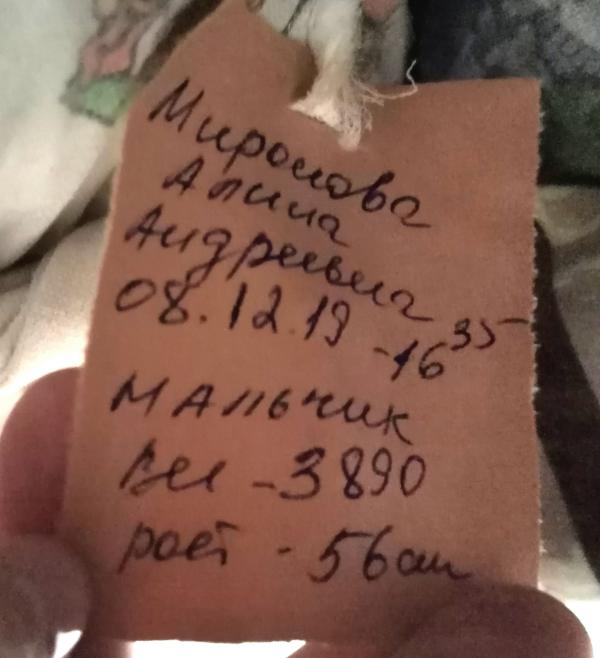 Миронова
Алина
Андреевна
08.12.19 -16 35
Мальчик
Вес - 3890
рост - 56 см